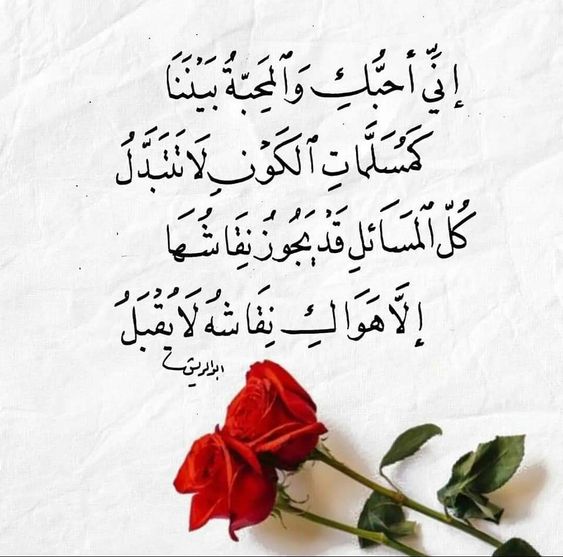 إِنِّي أُحبُّكِ وَٱلمَحبّةُ بَيْنَنَا
كَمُسَلَّمَاتِ ٱلكَوْنِ لَا تَتَبَدَّلُ
كُلّ ٱلمَسَائلِ قَدْ يَجُوزُ نِقَاشُهَا
إِلَّا هَوَاكِ نِقَاشهُ لَا يُقْبَلُ
ابو الريش